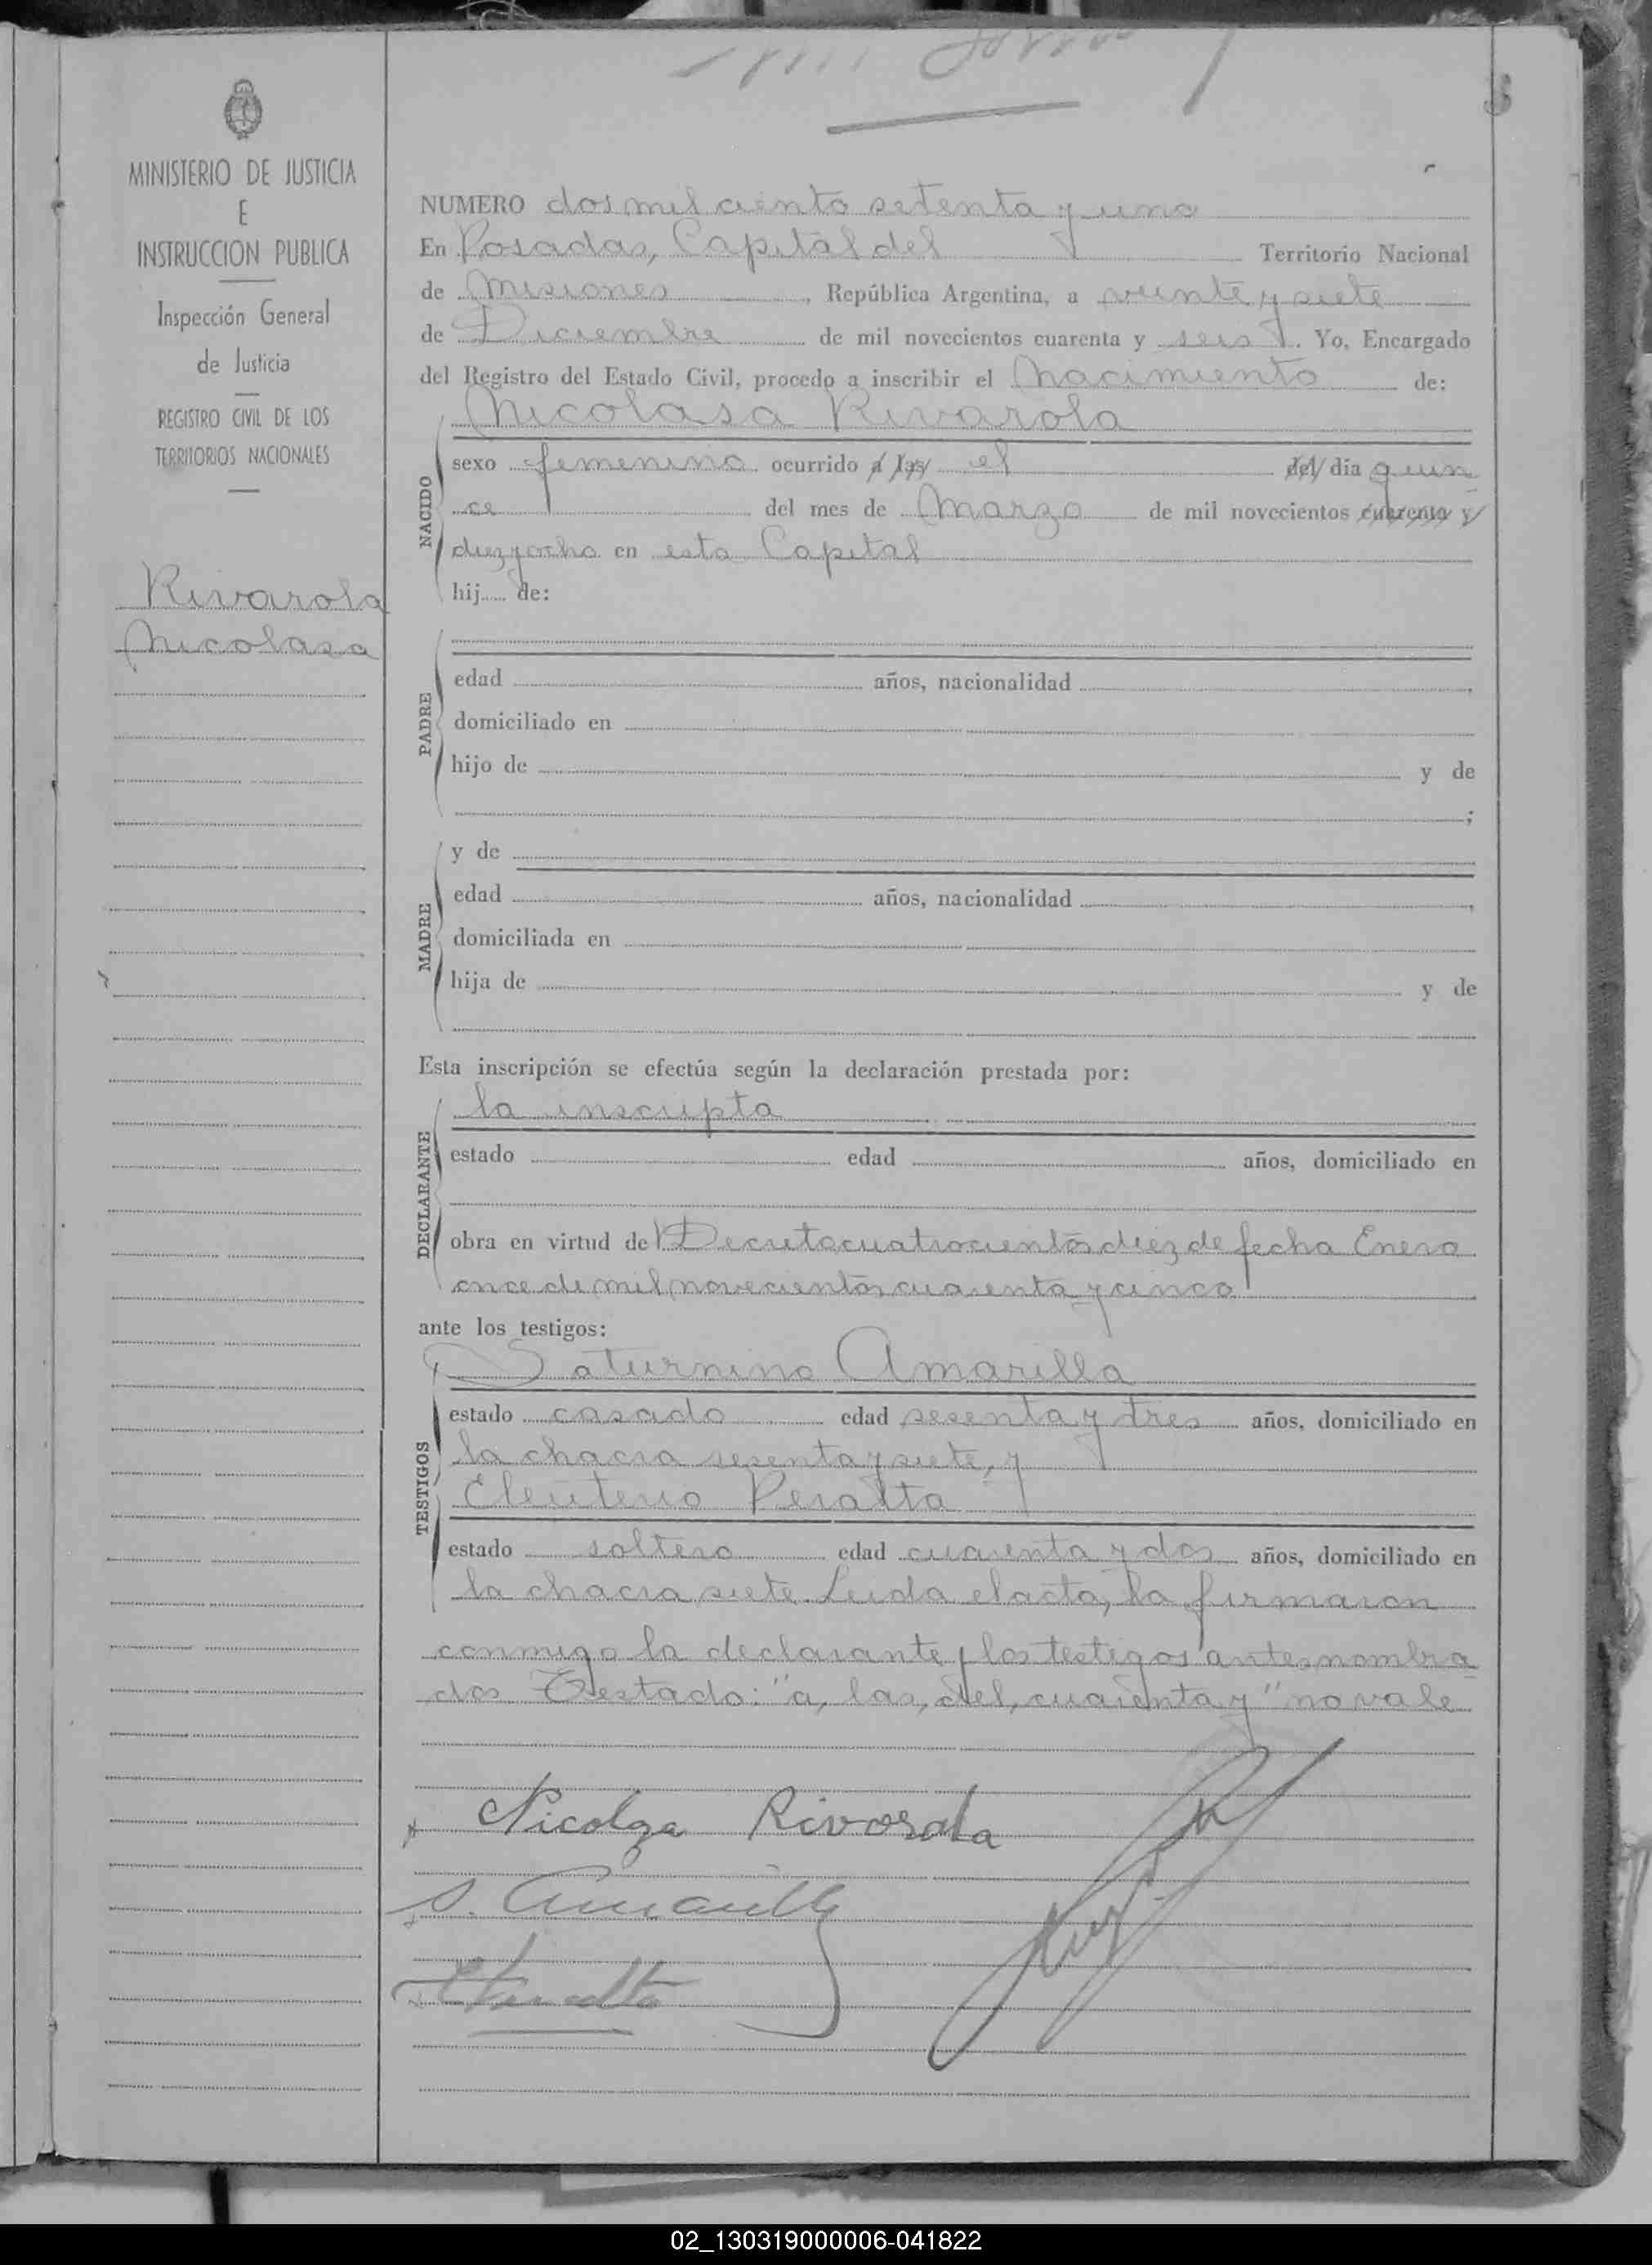 MINISTERIO DE JUSTICIA
E
INSTRUCCION PUBLICA
Inspección General
de Justicia
REGISTRO CIVIL DE LOS
TERRITORIOS NACIONALES
Rivarola
Nicolasa
NUMERO dos mil ciento setenta y uno
En Posadas, Capital del Territorio Nacional
de Misiones, República Argentina, a veinte y siete
de Diciembre de mil novecientos cuarenta y seis. Yo, Encargado
del Registro del Estado Civil, procedo a inscribir el Nacimiento de:
Nicolasa Rivarola
NACIDO
sexo femenino ocurrido a las el del día quin
ce del mes de Marzo de mil novecientos cuarenta y
diez y ocho en esta Capital
hij..... de:
PADRE
edad años, nacionalidad ,
domiciliado en
hijo de y de
;
MADRE
y de
edad años, nacionalidad ,
domiciliada en
hija de y de
Esta inscripción se efectúa según la declaración prestada por:
DECLARANTE
la inscripta
estado edad años, domiciliado en
obra en virtud de Decreto cuatrocientos diez de fecha Enero
once de mil novecientos cuarenta y cinco
ante los testigos:
TESTIGOS
Saturnino Amarilla
estado casado edad sesenta y tres años, domiciliado en
la chacra sesenta y siete, y
Eleuterio Peralta
estado soltero edad cuarenta y dos años, domiciliado en
la chacra siete. Leida el acta, la firmaron
conmigo la declarante y los testigos antes nombra
dos Testado: "a, las, del, cuarenta y" no vale
Nicolza Rivorola
S. Amarilla
E Peralta
02_130319000006-041822